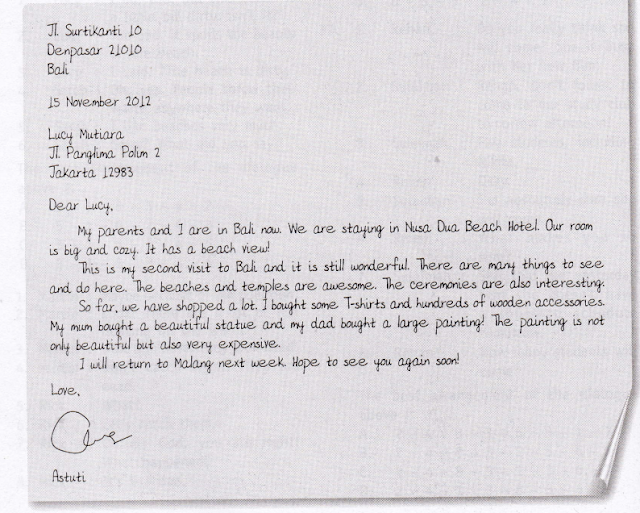 Jl. Surtikanti 10
Denpasar 21010
Bali
15 November 2012
Lucy Mutiara
Jl. Panglima Polim 2
Jakarta 12983
Dear Lucy,
My parents and I are in Bali now. We are staying in Nusa Dua Beach Hotel. Our room
is big and cozy. It has a beach view!
This is my second visit to Bali and it is still wonderful. There are many things to see
and do here. The beaches and temples are awesome. The ceremonies are also interesting.
So far, we have shopped a lot. I bought some T-shirts and hundreds of wooden accessories.
My mum bought a beautiful statue and my dad bought a large painting! The painting is not
only beautiful but also very expensive.
I will return to Malang next week. Hope to see you again soon!
Love,
Astuti